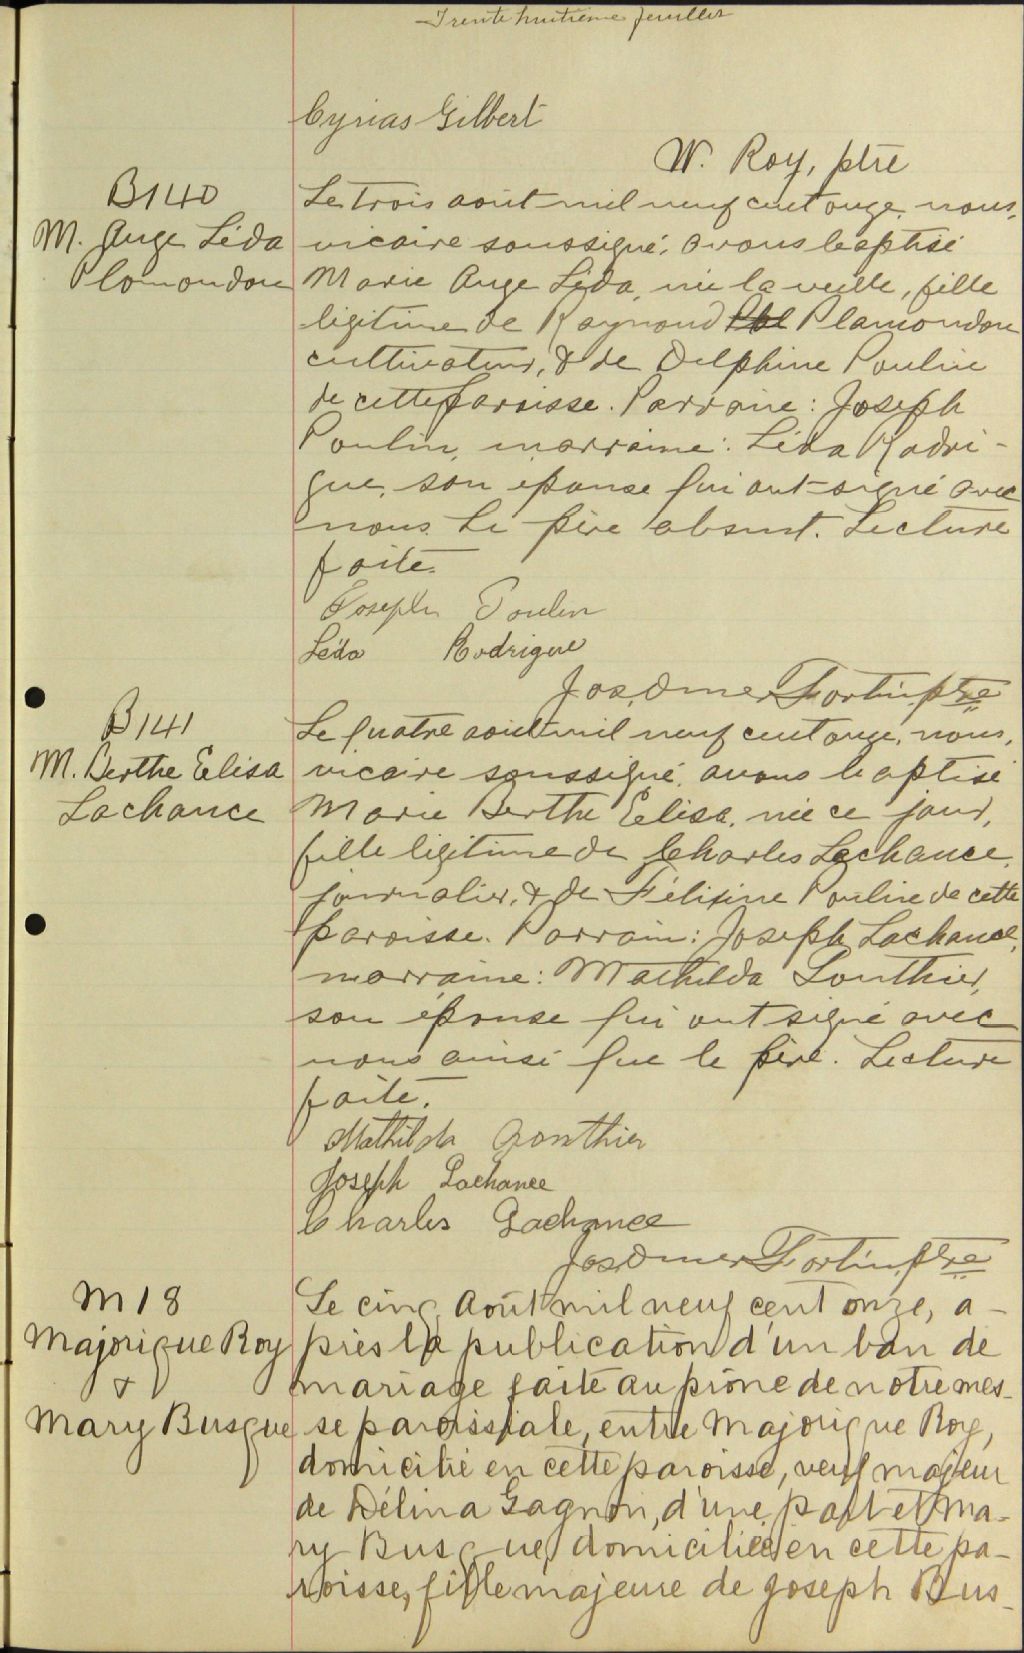 Trente huitième feuillet
Cyrias Gilbert
W. Roy, ptre
B140
M. Ange Léda
Plamondon
Le trois août mil neuf cent onze, nous,
vicaire soussigné, avons baptisé
Marie Ange Léda, née la veille, fille
légitime de Raymond Pla Plamondon
cultivateur, & de Delphine Poulin
de cette paroisse. Parrain : Joseph
Poulin, marraine : Léda Rodri-
gue, son épouse qui ont signé avec
nous. Le père absent. Lecture
faite.
Joseph Poulin
Léda Rodrigue
Jos. Omer Fortin, ptre
B141
M. Berthe Elisa
Lachance
Le quatre août mil neuf cent onze, nous,
vicaire soussigné, avons baptisé
Marie Berthe Elisa, née ce jour,
fille légitime de Charles Lachance,
journalier, & de Félixine Poulin de cette
paroisse. Parrain : Joseph Lachance,
marraine : Mathilda Gonthier,
son épouse qui ont signé avec
nous ainsi que le père. Lecture
faite.
Mathilda Gonthier
Joseph Lachance
Charles Lachance
Jos. Omer Fortin, ptre
M18
Majorique Roy
&
Mary Busque
Le cinq Août mil neuf cent onze, a-
près la publication d'un ban de
mariage faite au prône de notre mes-
se paroissiale, entre Majorique Roy,
domicilié en cette paroisse, veuf majeur
de Délina Gagnon, d'une part et Ma-
ry Busque, domiciliée en cette pa-
roisse, fille majeure de Joseph Bus-